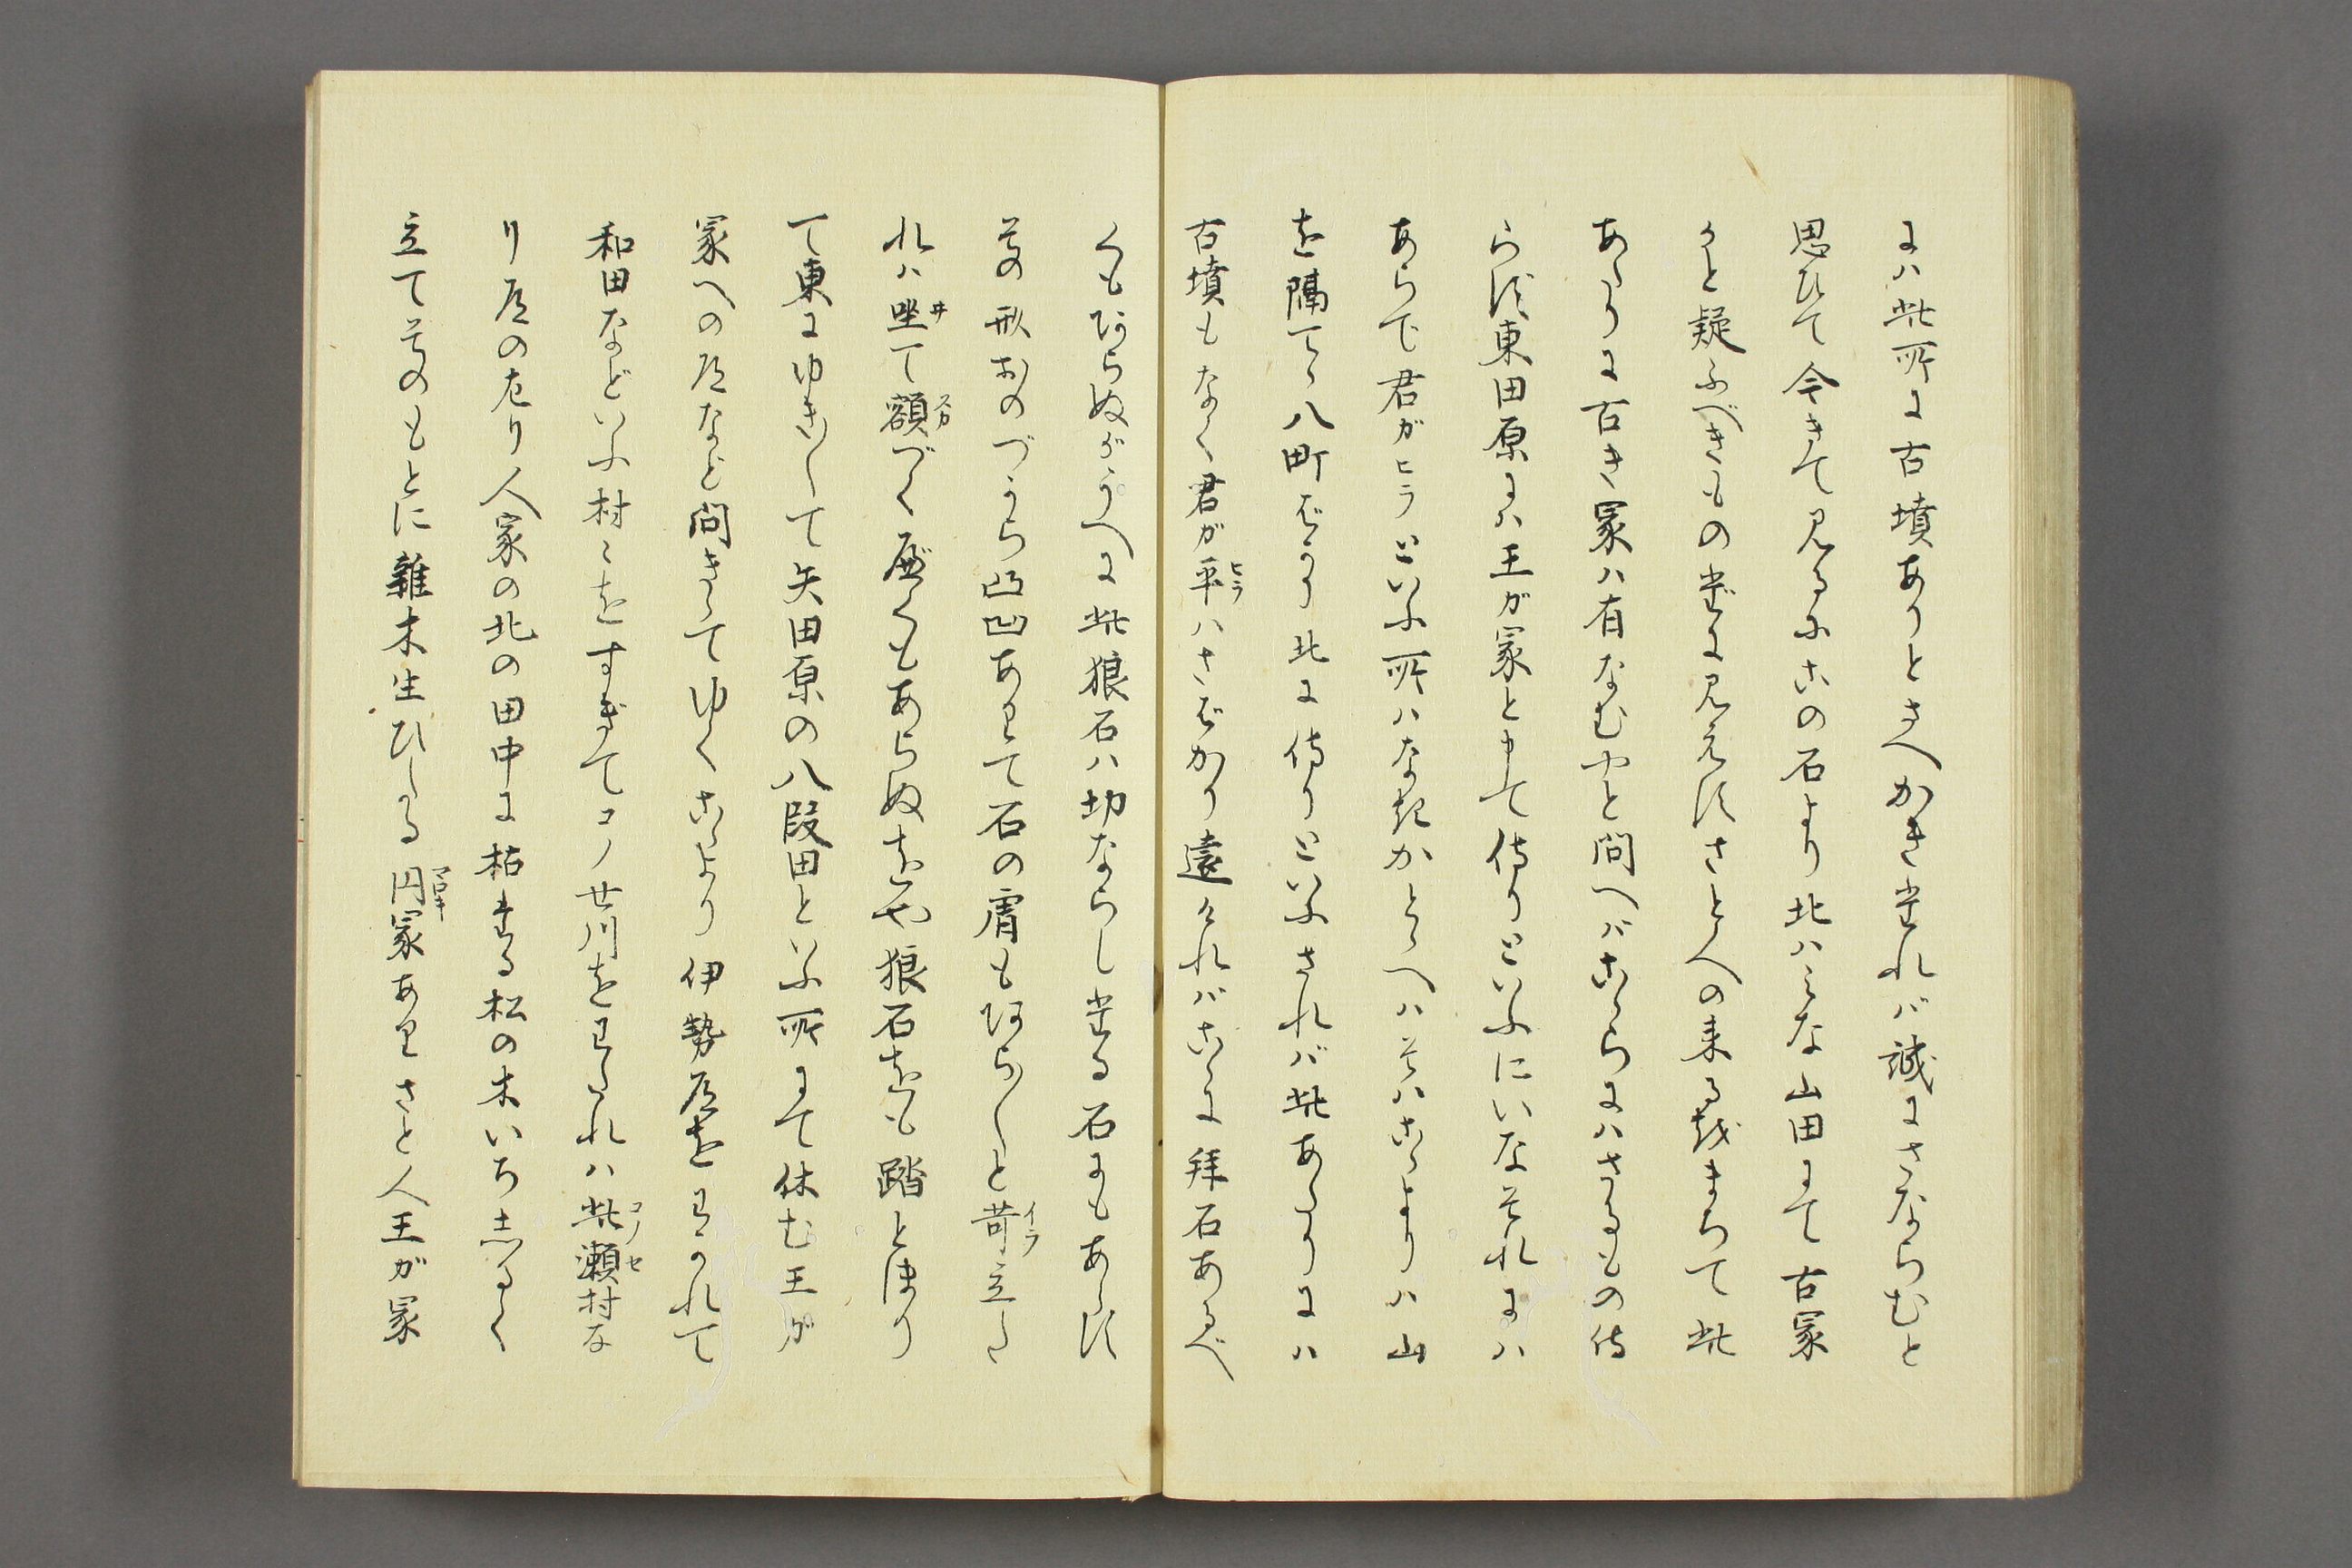 には此所に古墳ありとさへかきたれば誠にさならむと
思ひて今きて見るにこの石より北はみな山田にて古冢
かと疑ふべきもののたえに見えずさと人の来るをまちて此
あたりに古き冢は有なむやと問へばこゝらにはさるもの侍
らず東田原には王が冢とまて侍りといふにいなそれには
あらで君がヒラといふ所はなきかとゝへはそはこゝよりは山
を隔てゝ八町ばかり北に侍りといふされば此あたりには
古墳もなく君が平ヒラはさばかり遠ければこゝに拝石あるべ
くもあらぬがうへに此狼石は切ならしたる石にもあらず
其の形おのづから凸凹ありて石の膚もあら〳〵と苛イラ立た
れは坐ヰて額ヌカづくべくもあらぬをや狼石をも踏とほり
て東にゆき〳〵て矢田原の八段田といふ所にて休む王が
冢への道など問きゝてゆくこゝより伊勢道をわかれて
和田などいふ村々をすぎてコノ世川をわたれは此瀬コノセ村な
り道の左り人家の北の田中に枯たる松の木いちしるく
立て其のもとに雜木生ひしける円冢マロキあり さと人王が冢